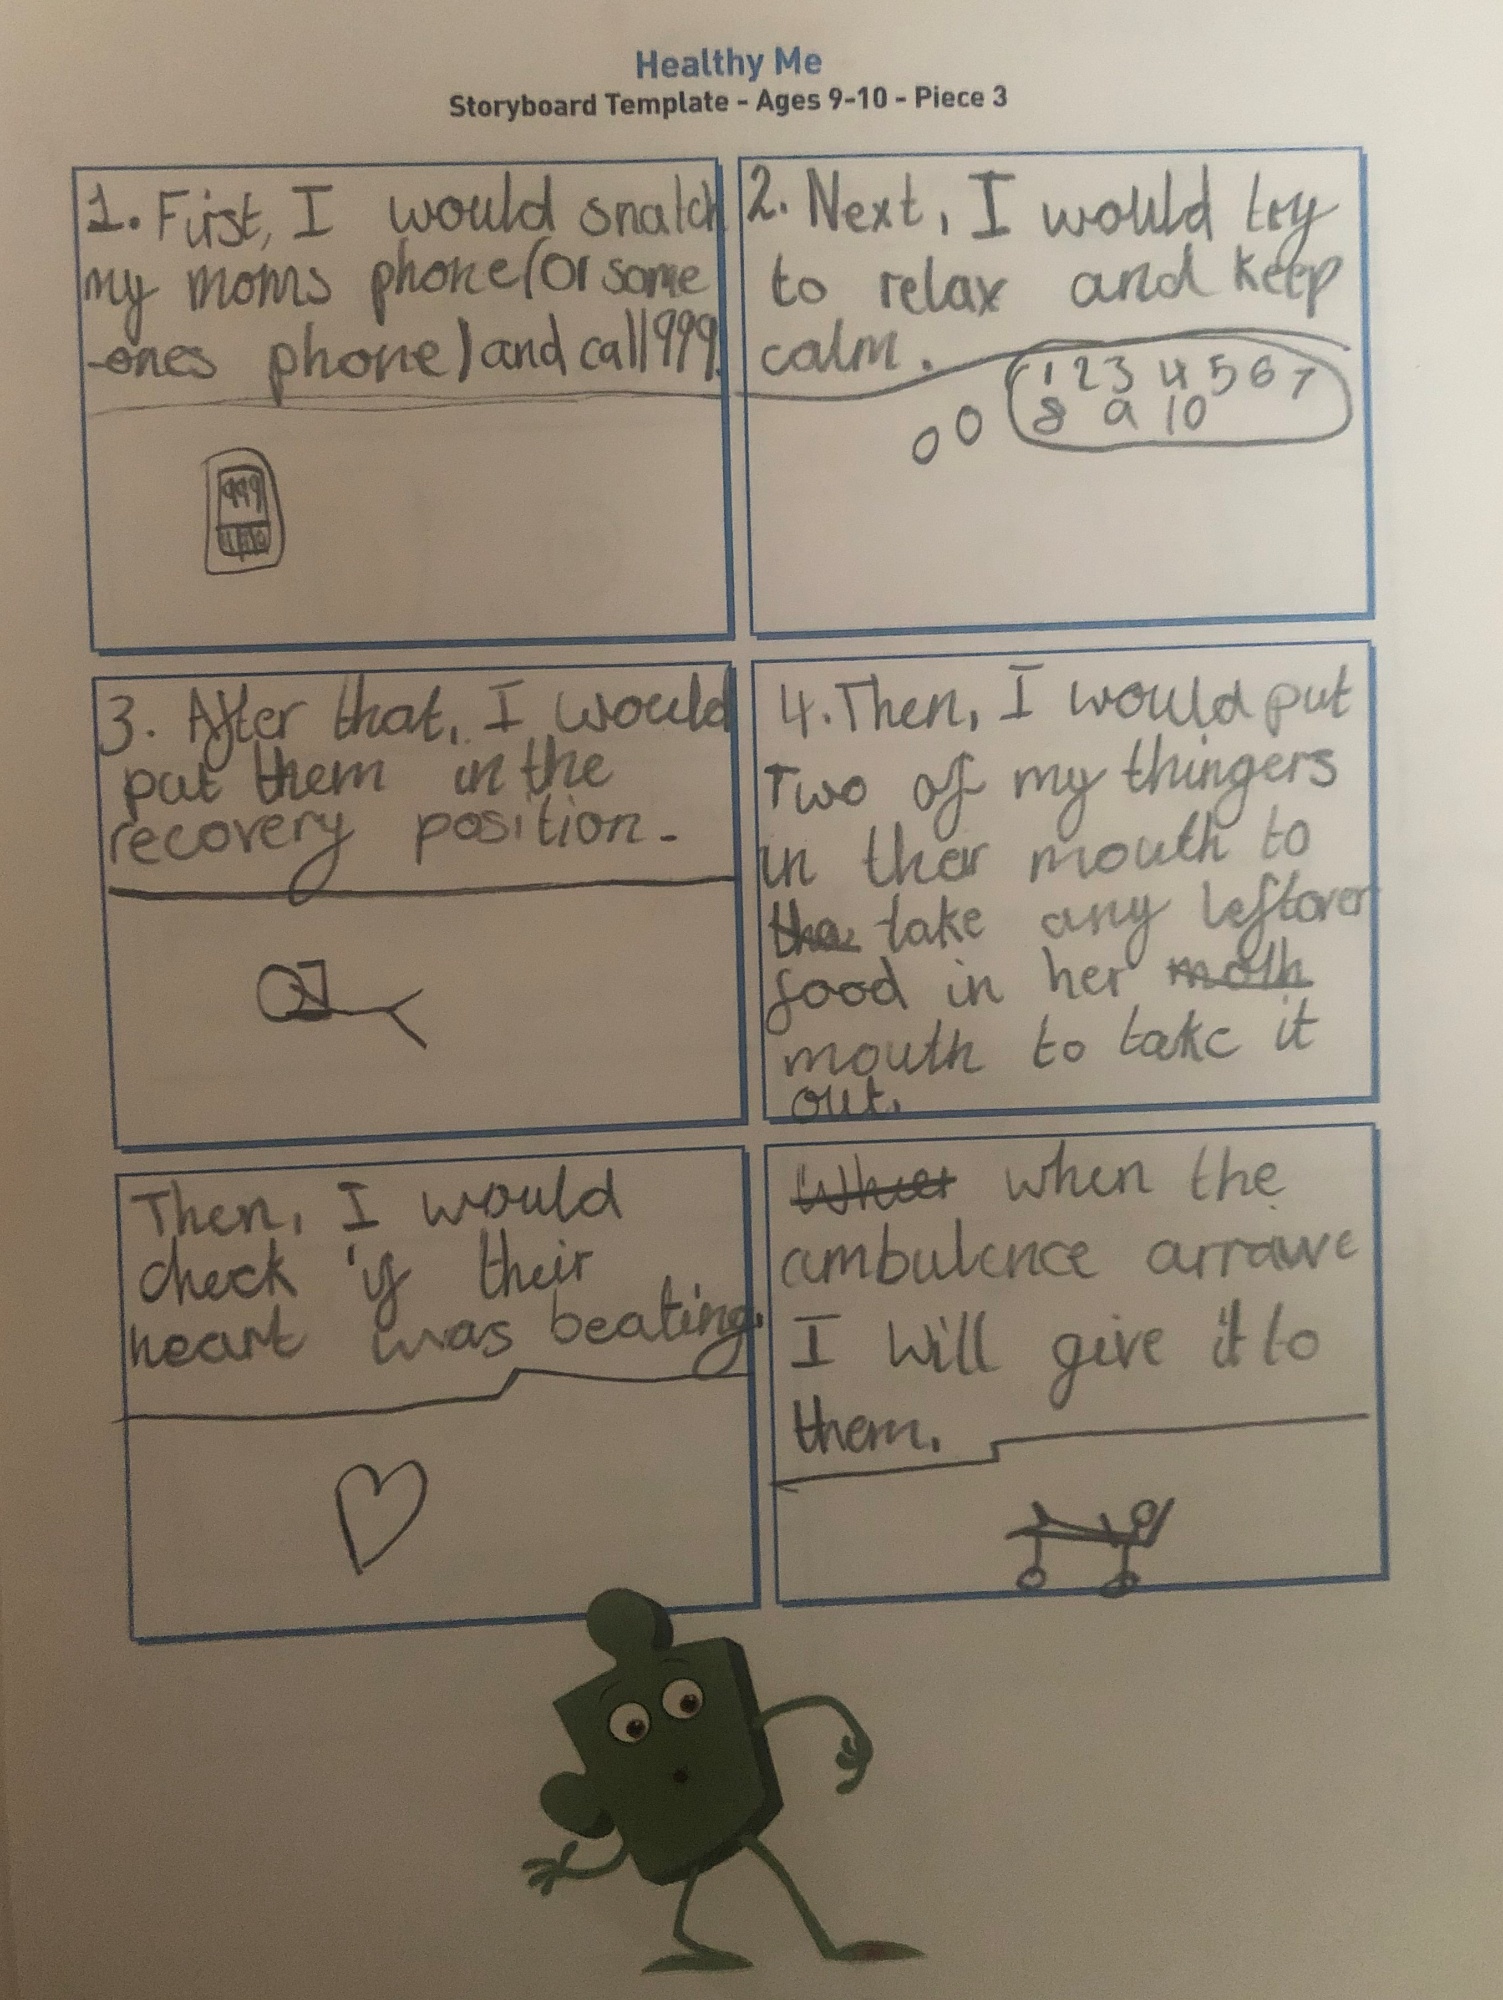 Healthy Me
Storyboard Template - Ages 9-10 - Piece 3
1. First, I would snatch
my moms phone (or some
-ones phone) and call 999.
999
2. Next, I would try
to relax and keep
calm.
1 2 3 4 5 6 7
8 9 10
3. After that, I would
put them in the
recovery position.
4. Then, I would put
Two of my thingers
in ther mouth to
tha take any leftover
food in her moth
mouth to take it
out.
Then, I would
check if their
heart was beating.
when the
ambulence arrawe
I will give it to
them.